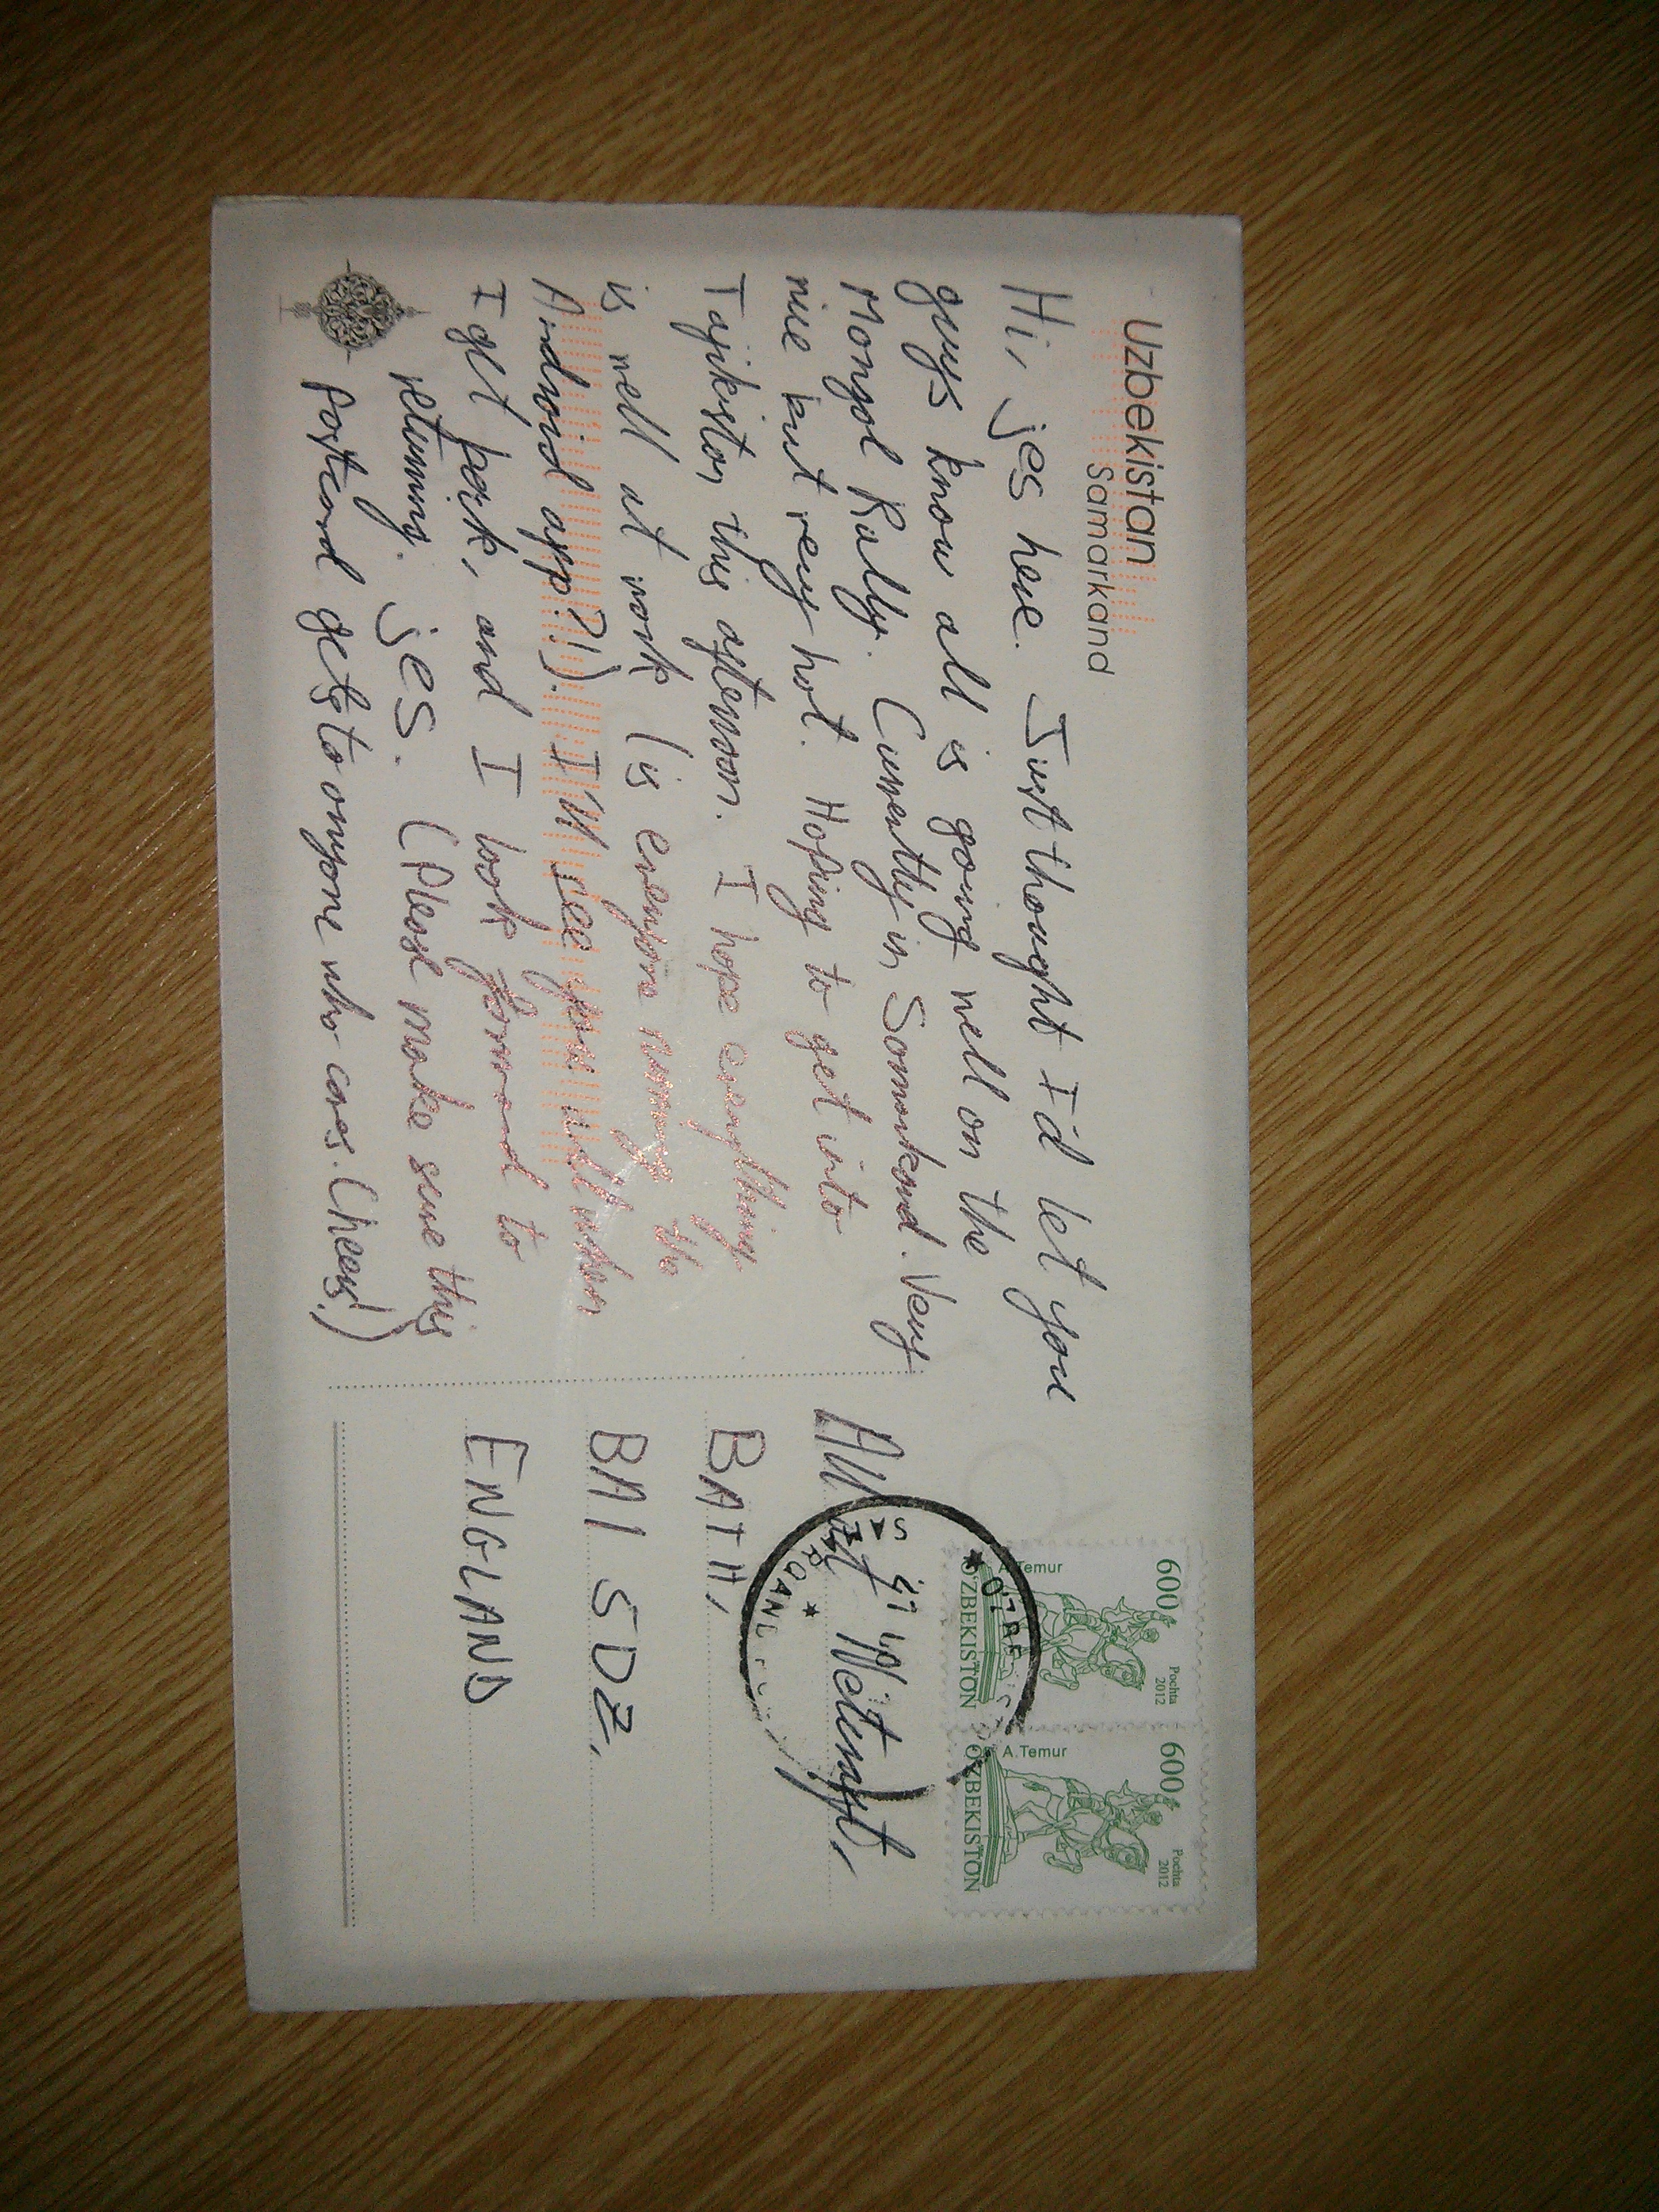 Uzbekistan
Samarkand
Hi, Jes here. Just thought I'd let you
guys know all is going well on the
Mongol Rally. Currently in Samarkand. Very
nice but very hot. Hoping to get into
Tajikistan this afternoon. I hope everything
is well at work (is everyone running the
Android app?!). I'll see you all when
I get back, and I look forward to
returning. Jes. (Please make sure this
postcard gets to anyone who cares. Cheers!)
600
Pochta
2012
A.Temur
O'ZBEKISTON
600
Pochta
2012
A.Temur
O'ZBEKISTON
All at
BATH,
BA1 5DZ,
ENGLAND